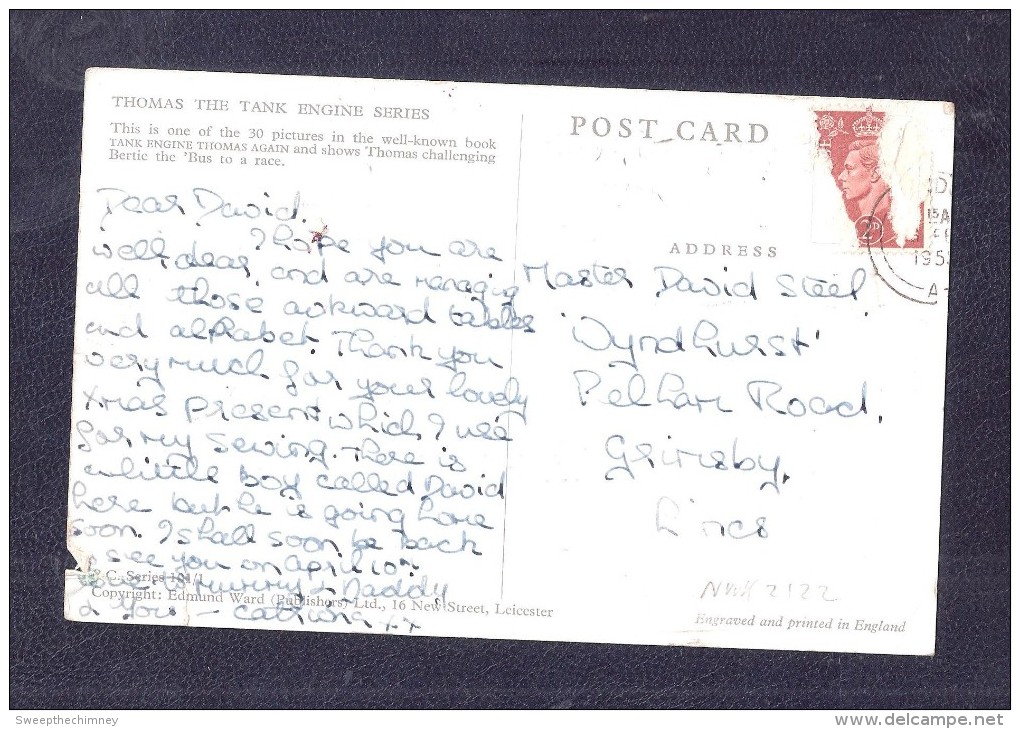 THOMAS THE TANK ENGINE SERIES
This is one of the 30 pictures in the well-known book
TANK ENGINE THOMAS AGAIN and shows Thomas challenging
Bertie the 'Bus to a race.
Dear David.
I hope you are
well, dear, and are managing
all those awkward tables
and alphabet. Thank you
very much for your lovely
Xmas present which I use
for my sewing. There is
a little boy called David
here but he is going home
soon. I shall soon be back
to see you on April 10th
love to mummy & Daddy
& you - Catriona xx
C. Series 101/1
Copyright: Edmund Ward (Publishers) Ltd., 16 New Street, Leicester
POST CARD
ADDRESS
Master David Steel
'Wyndhurst'
Pelham Road,
Grimsby,
Lincs
2D
15 A
195
NWK 2122
Engraved and printed in England
Sweepthechimney
www.delcampe.net